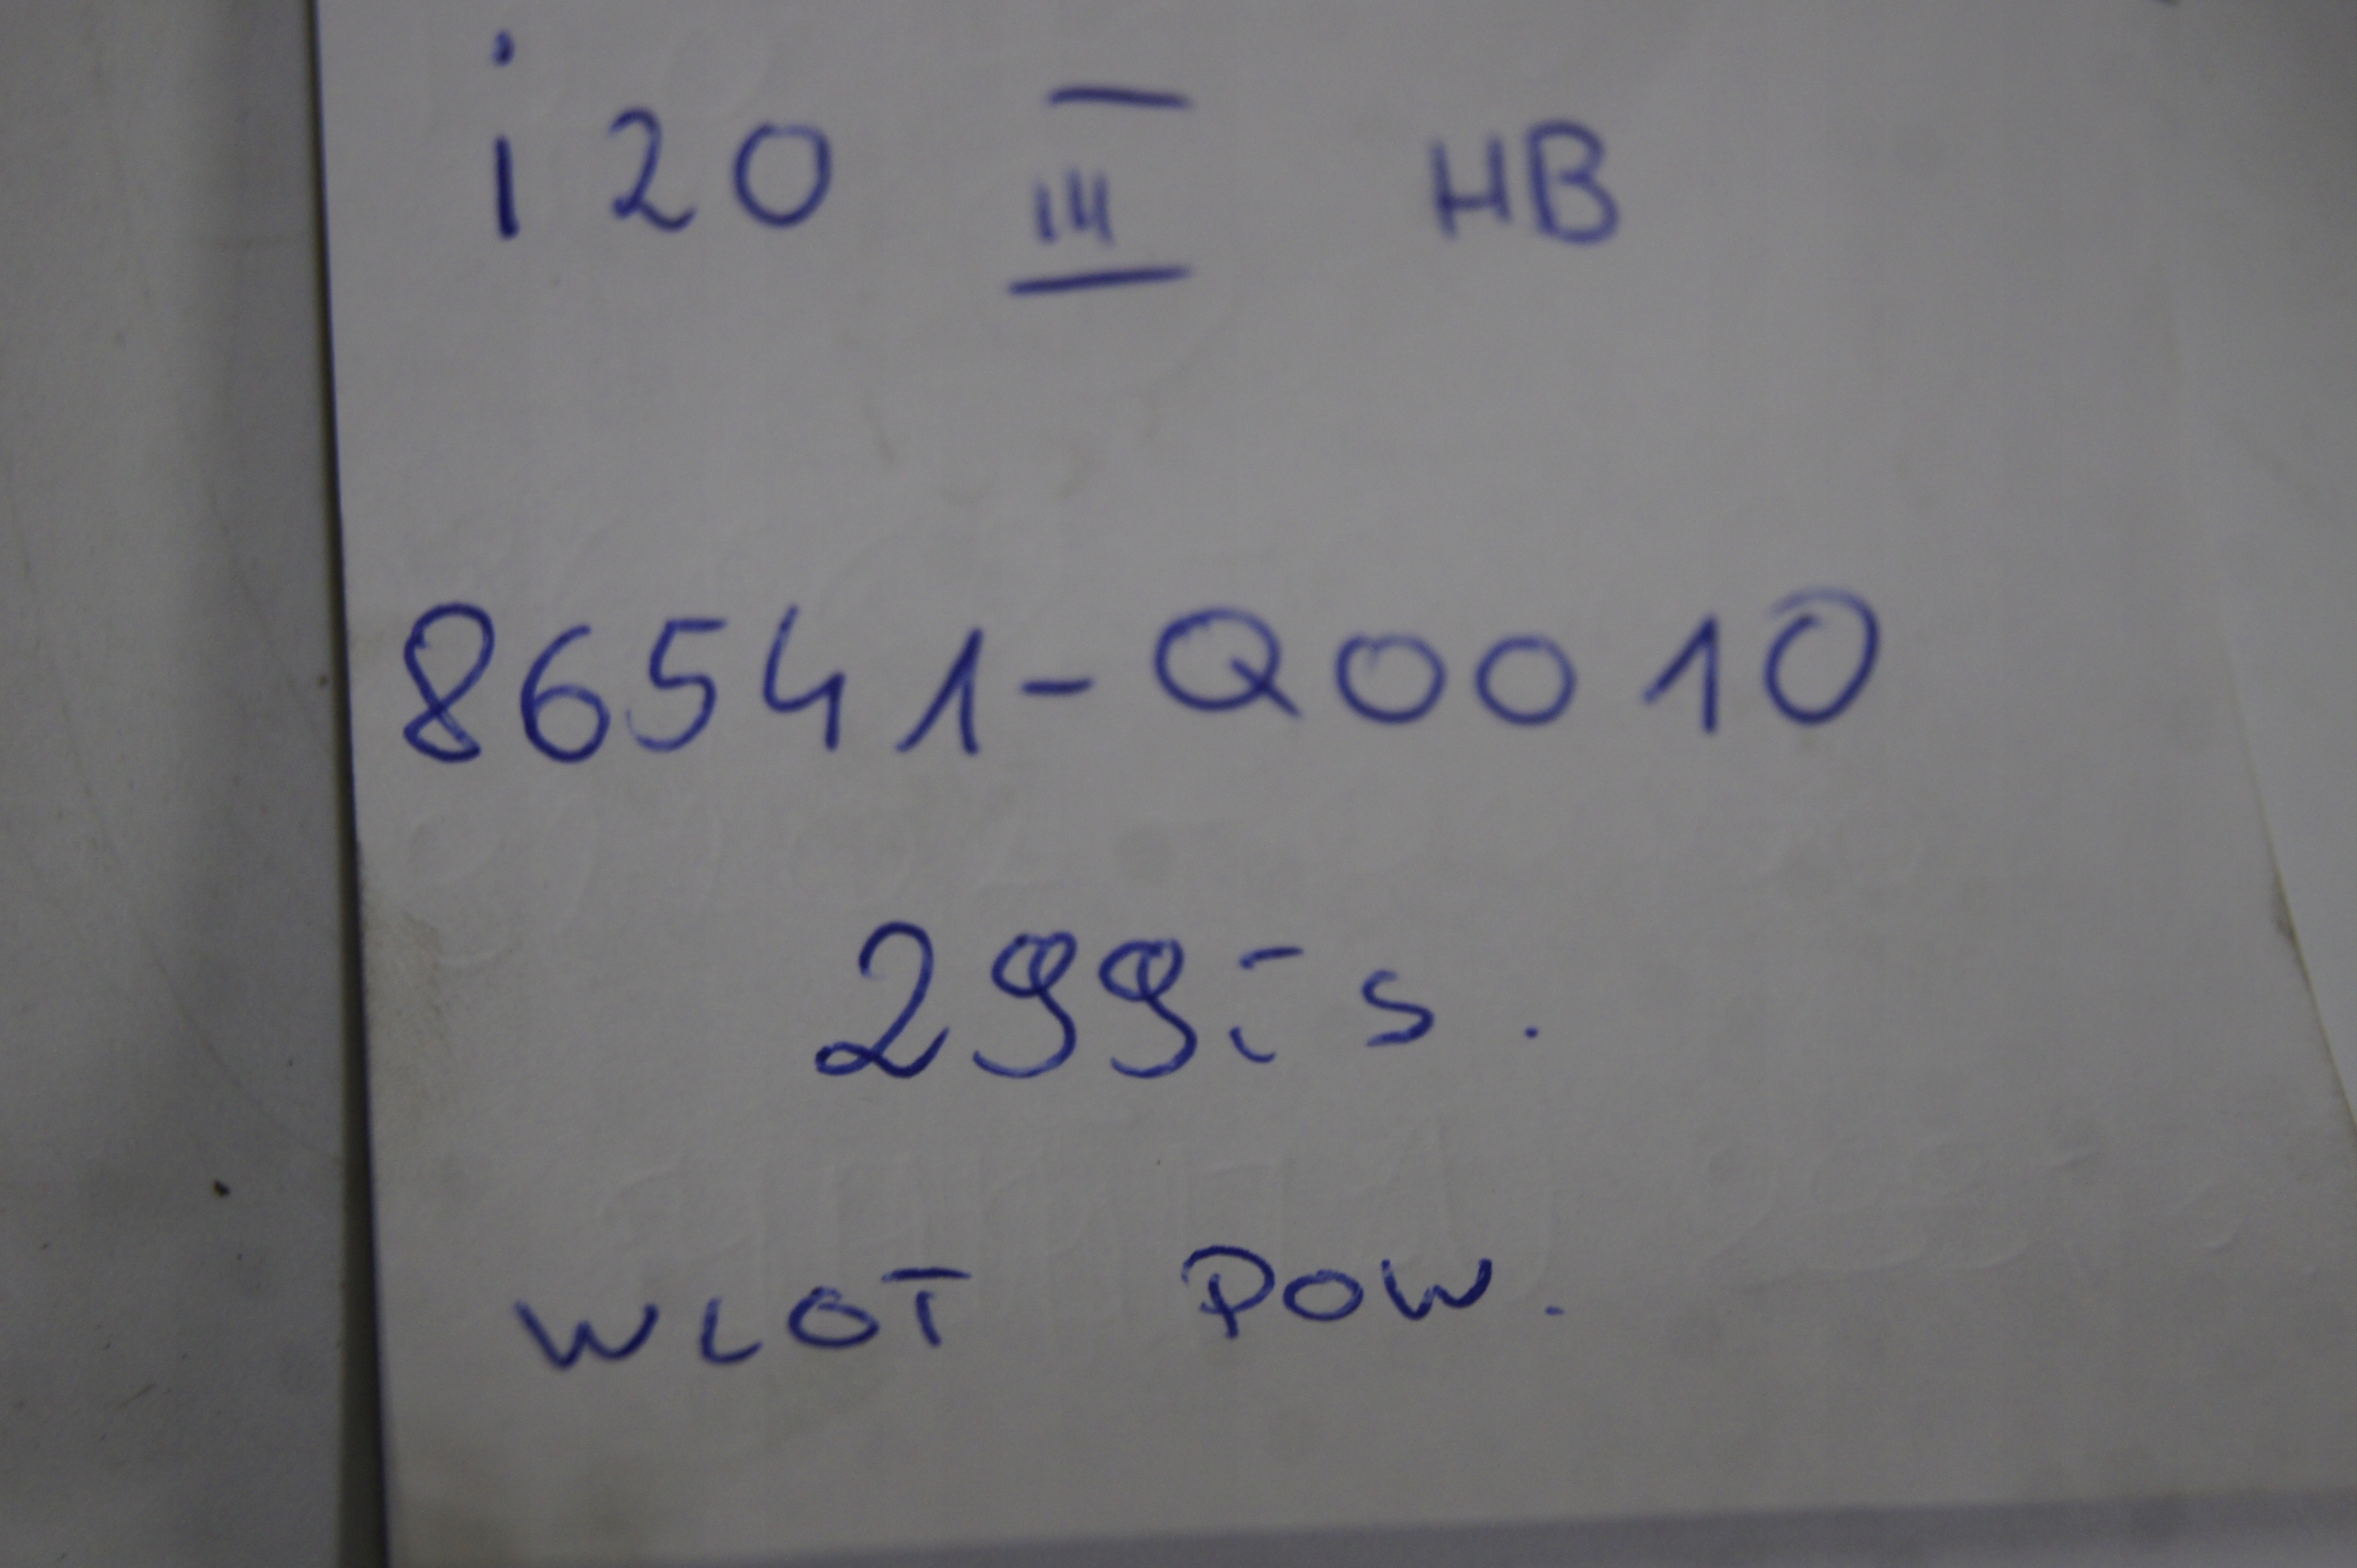 i20 III HB
86541-Q0010
299,- s.
WLOT POW.